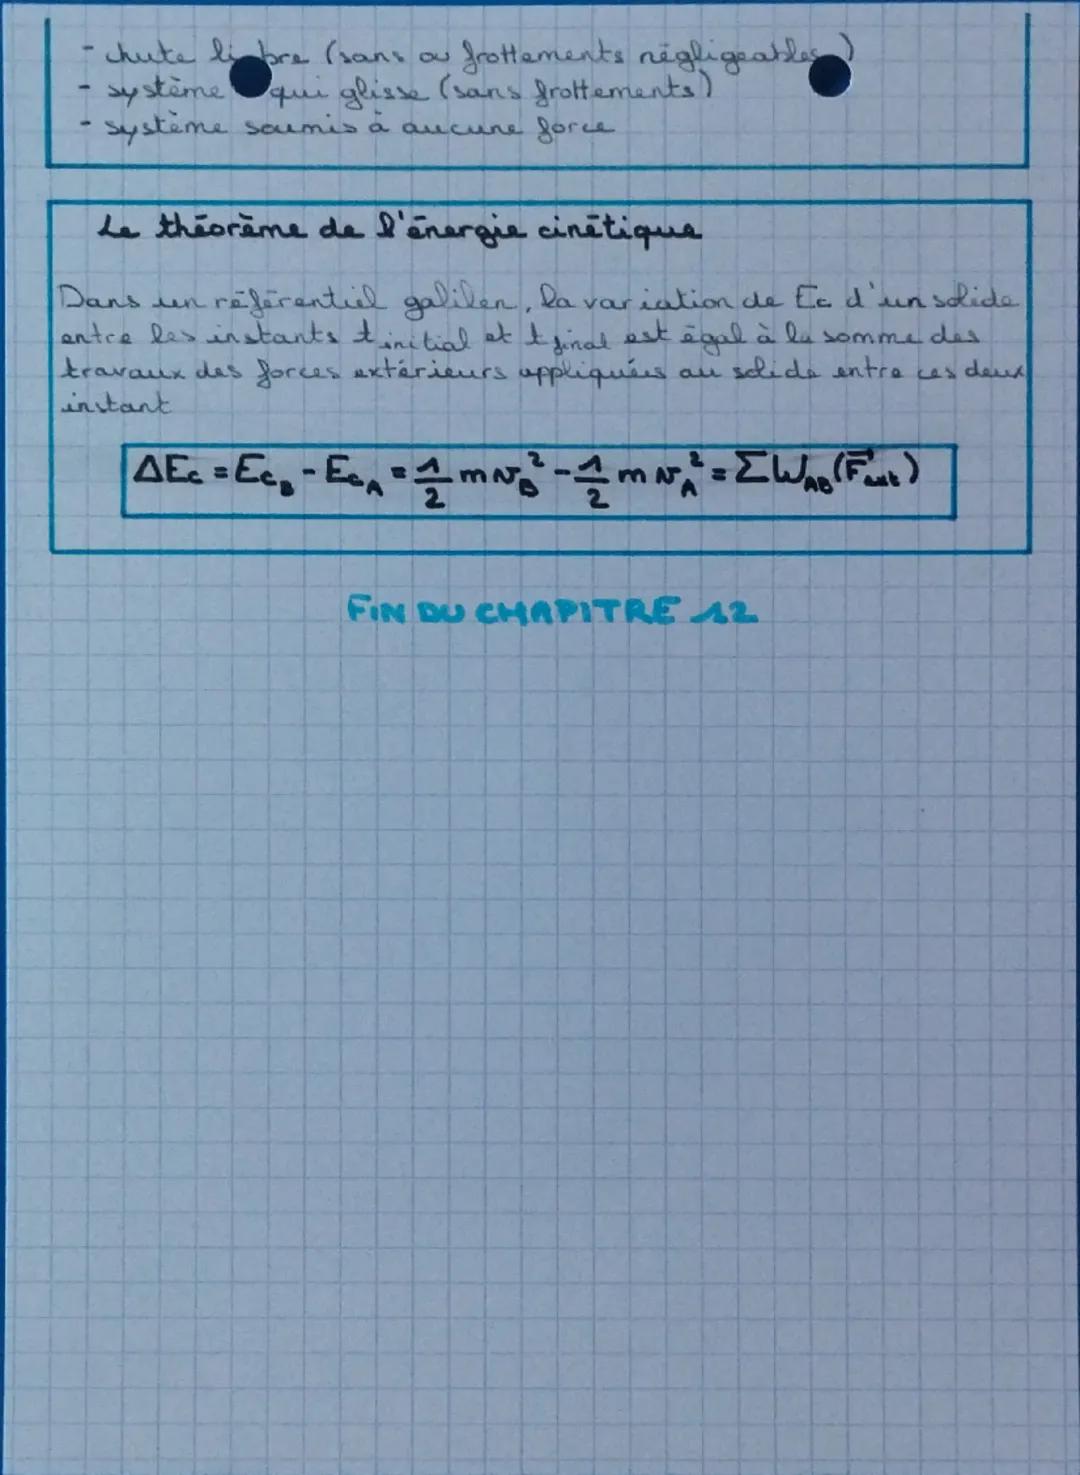 - chute libre (sans ou frottements négligeables)
- système qui glisse (sans frottements)
- système soumis à aucune force
Le théorème de l'énergie cinétique
Dans un référentiel galilen, la variation de Ec d'un solide
entre les instants t initial et t final est égal à la somme des
travaux des forces extérieurs appliquées au solide entre ces deux
instant
ΔEc = Ec_B - Ec_A = 1/2 m v_B² - 1/2 m v_A² = ΣW_AB(F⃗ext)
FIN DU CHAPITRE 12